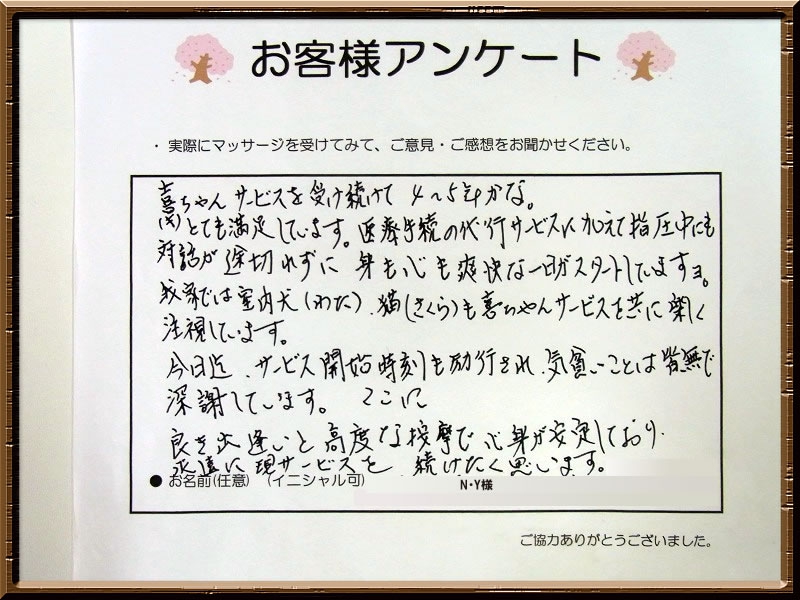 お客様アンケート
・ 実際にマッサージを受けてみて、ご意見・ご感想をお聞かせください。
喜ちゃんサービスを受け続けて 4～5年かな。
とても満足しています。医療手続の代行サービスに加えて指圧中にも
対話が途切れずに 身も心も爽快な一日がスタートしていますヨ。
我家では室内犬(わた)、猫(さくら)も喜ちゃんサービスを共に楽しく
注視しています。
今日迄、サービス開始時刻も励行され、気貧いことは皆無で
深謝しています。 ここに
良き出逢いと高度な按摩で心身が安定しており、
永遠に現サービスを 続けたく思います。
● お名前(任意) (イニシャル可) N・Y様
ご協力ありがとうございました。